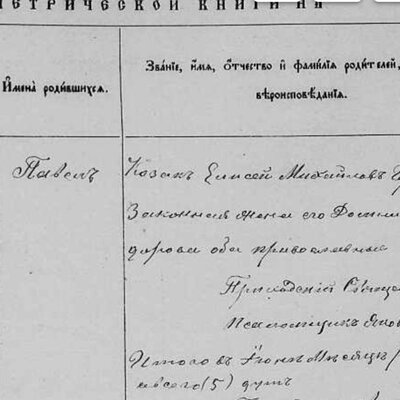 МЕТРИЧЕСКОЙ КНИГИ НА
Имена родившихся.
Званіе, имя, отчество и фамилія родителей,
вѣроисповѣданія.
Павелъ
Козакъ Елисей Михайловъ
Законная жена его
дорова оба православные
Приходскій Священ
Псаломщикъ Яков
Итого въ Іюнѣ Мѣсяцѣ
всего (5) душъ